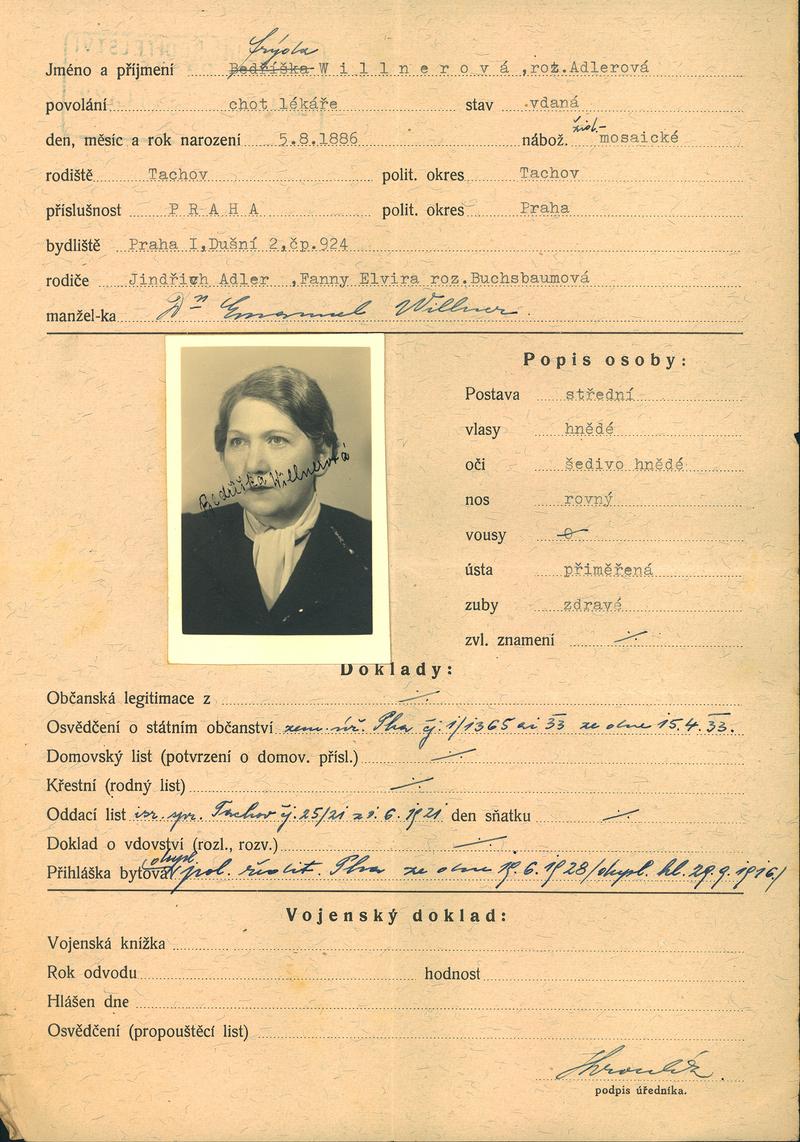 Frýda
Jméno a příjmení Bedřiška W i l l n e r o v á ,roz.Adlerová
povolání chot lékáře stav vdaná
den, měsíc a rok narození 5.8.1886 nábož. žid.- mosaické
rodiště Tachov polit. okres Tachov
příslušnost P R A H A polit. okres Praha
bydliště Praha I,Dušní 2,čp.924
rodiče Jindřich Adler ,Fanny Elvira roz.Buchsbaumová
manžel-ka Dr Emanuel Willner.
Popis osoby:
Postava střední
vlasy hnědé
oči šedivo hnědé
nos rovný
vousy 0
ústa přiměřená
zuby zdravé
zvl. znamení ./.
Bedřiška Willnerová
Doklady:
Občanská legitimace z ./.
Osvědčení o státním občanství zem. úř. Pha čj. 1/1365 ai 33 ze dne 15.4.33.
Domovský list (potvrzení o domov. přísl.) ./.
Křestní (rodný list) ./.
Oddací list isr. Tachov čj. 25/21 z 1.6.1921 den sňatku ./.
Doklad o vdovství (rozl., rozv.) ./.
Přihláška bytová pol. ředit. Pha ze dne 19.6.1928 /dupl. hl. 29.9.1916/
Vojenský doklad:
Vojenská knížka
Rok odvodu hodnost
Hlášen dne
Osvědčení (propouštěcí list)
podpis úředníka.